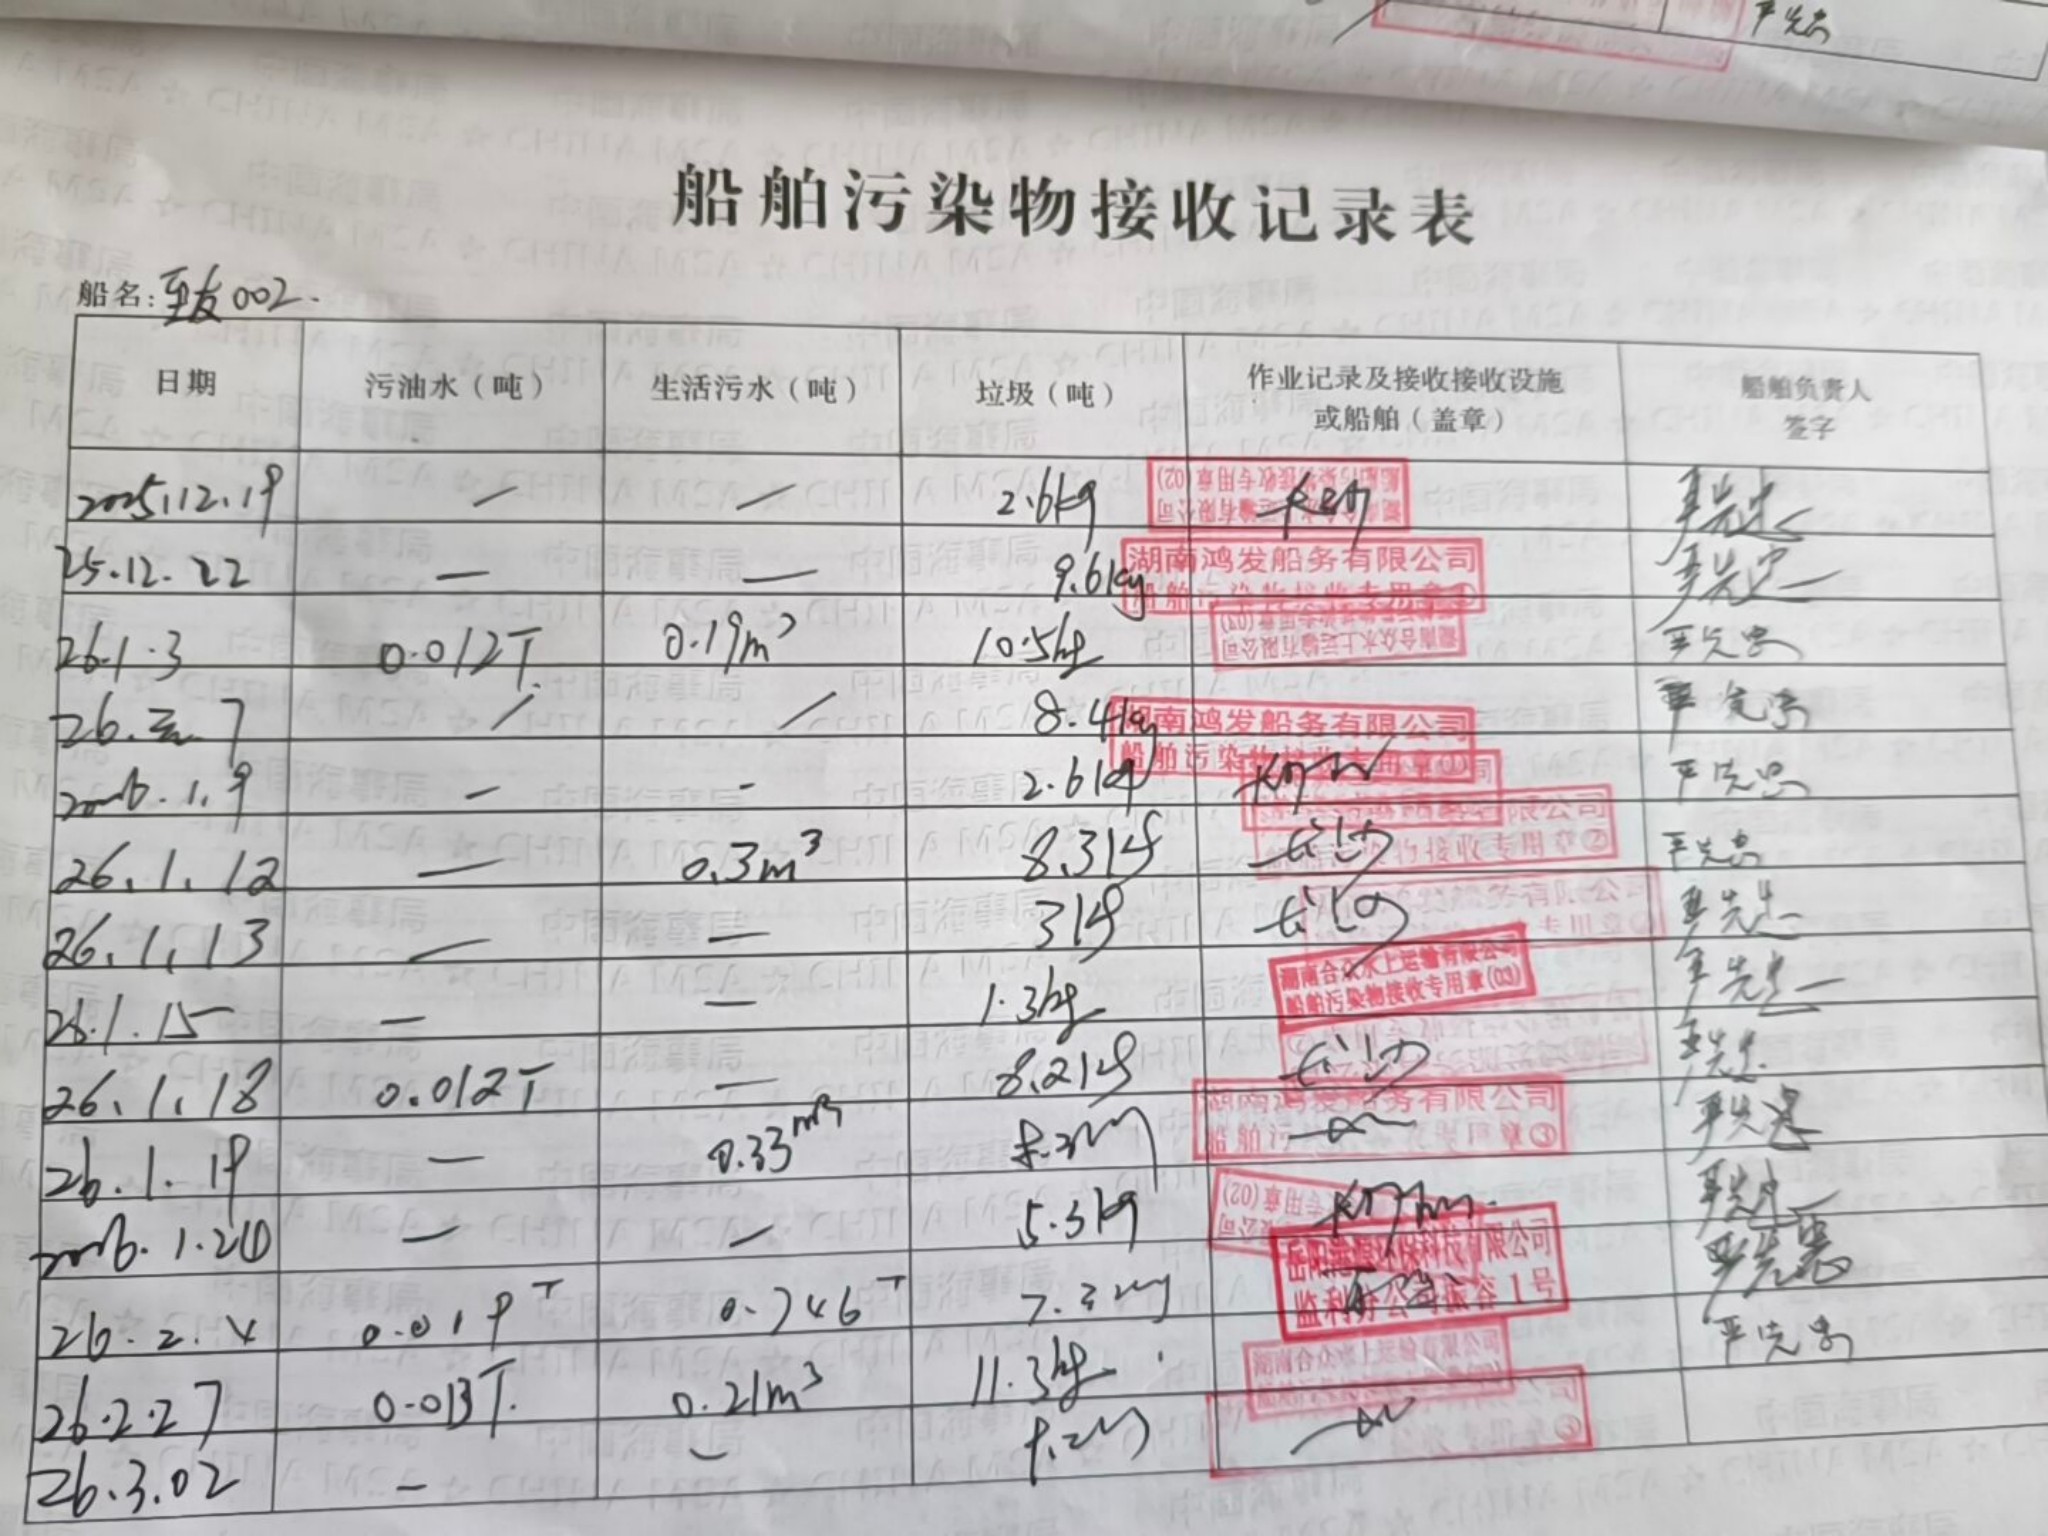 船舶污染物接收记录表
船名: 至友002.
日期 污油水（吨） 生活污水（吨） 垃圾（吨） 作业记录及接收接收设施或船舶（盖章） 船舶负责人签字
2025.12.19 — — 2.6kg 严先忠
25.12.22 — — 9.6kg 湖南鸿发船务有限公司 船舶污染物接收专用章 严先忠
26.1.3 0.012T 0.19m³ 10.5kg 湖南合众水上运输有限公司 严先忠
26. 7 / / 8.4kg 湖南鸿发船务有限公司 船舶污染物接收专用章 严先忠
2026.1.9 — - 2.6kg 严先忠
26.1.12 — 0.3m³ 8.3kg 长沙 接收专用章② 严先忠
26.1.13 — — 3kg 长沙 严先忠
26.1.15 — — 1.3kg 湖南合众水上运输有限公司 船舶污染物接收专用章(03) 严先忠
26.1.18 0.012T — 8.2kg 长沙 严先忠
26.1.19 — 0.33m³ 湖南鸿发船务有限公司 严先忠
2026.1.20 — — 5.3kg 严先忠
26.2.4 0.019T 0.746T 监利分公司 1号 严先忠
26.2.27 0.013T. 0.21m³ 11.3kg 湖南合众水上运输有限公司 严先忠
26.3.02 - -